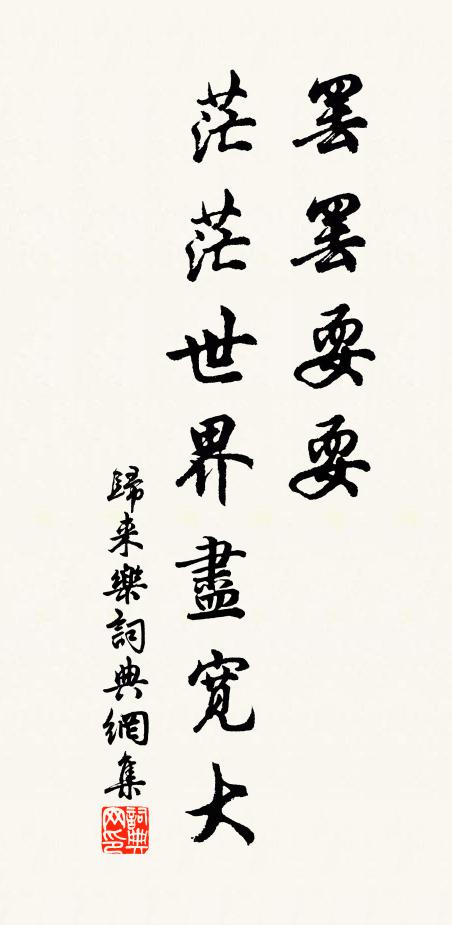 罢罢耍耍
茫茫世界盡寬大
歸来樂詞典網集
詞典
网印